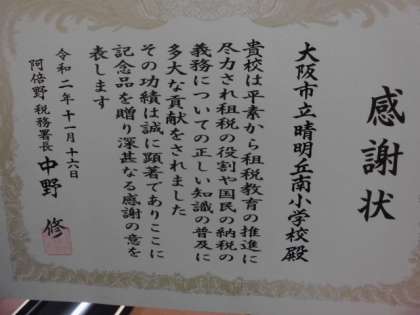 感謝状
大阪市立晴明丘南小学校殿
貴校は平素から租税教育の推進に
尽力され租税の役割や国民の納税の
義務についての正しい知識の普及に
多大な貢献をされました
その功績は誠に顕著でありここに
記念品を贈り深甚なる感謝の意を
表します
令和二年十一月十六日
阿倍野税務署長 中野 修